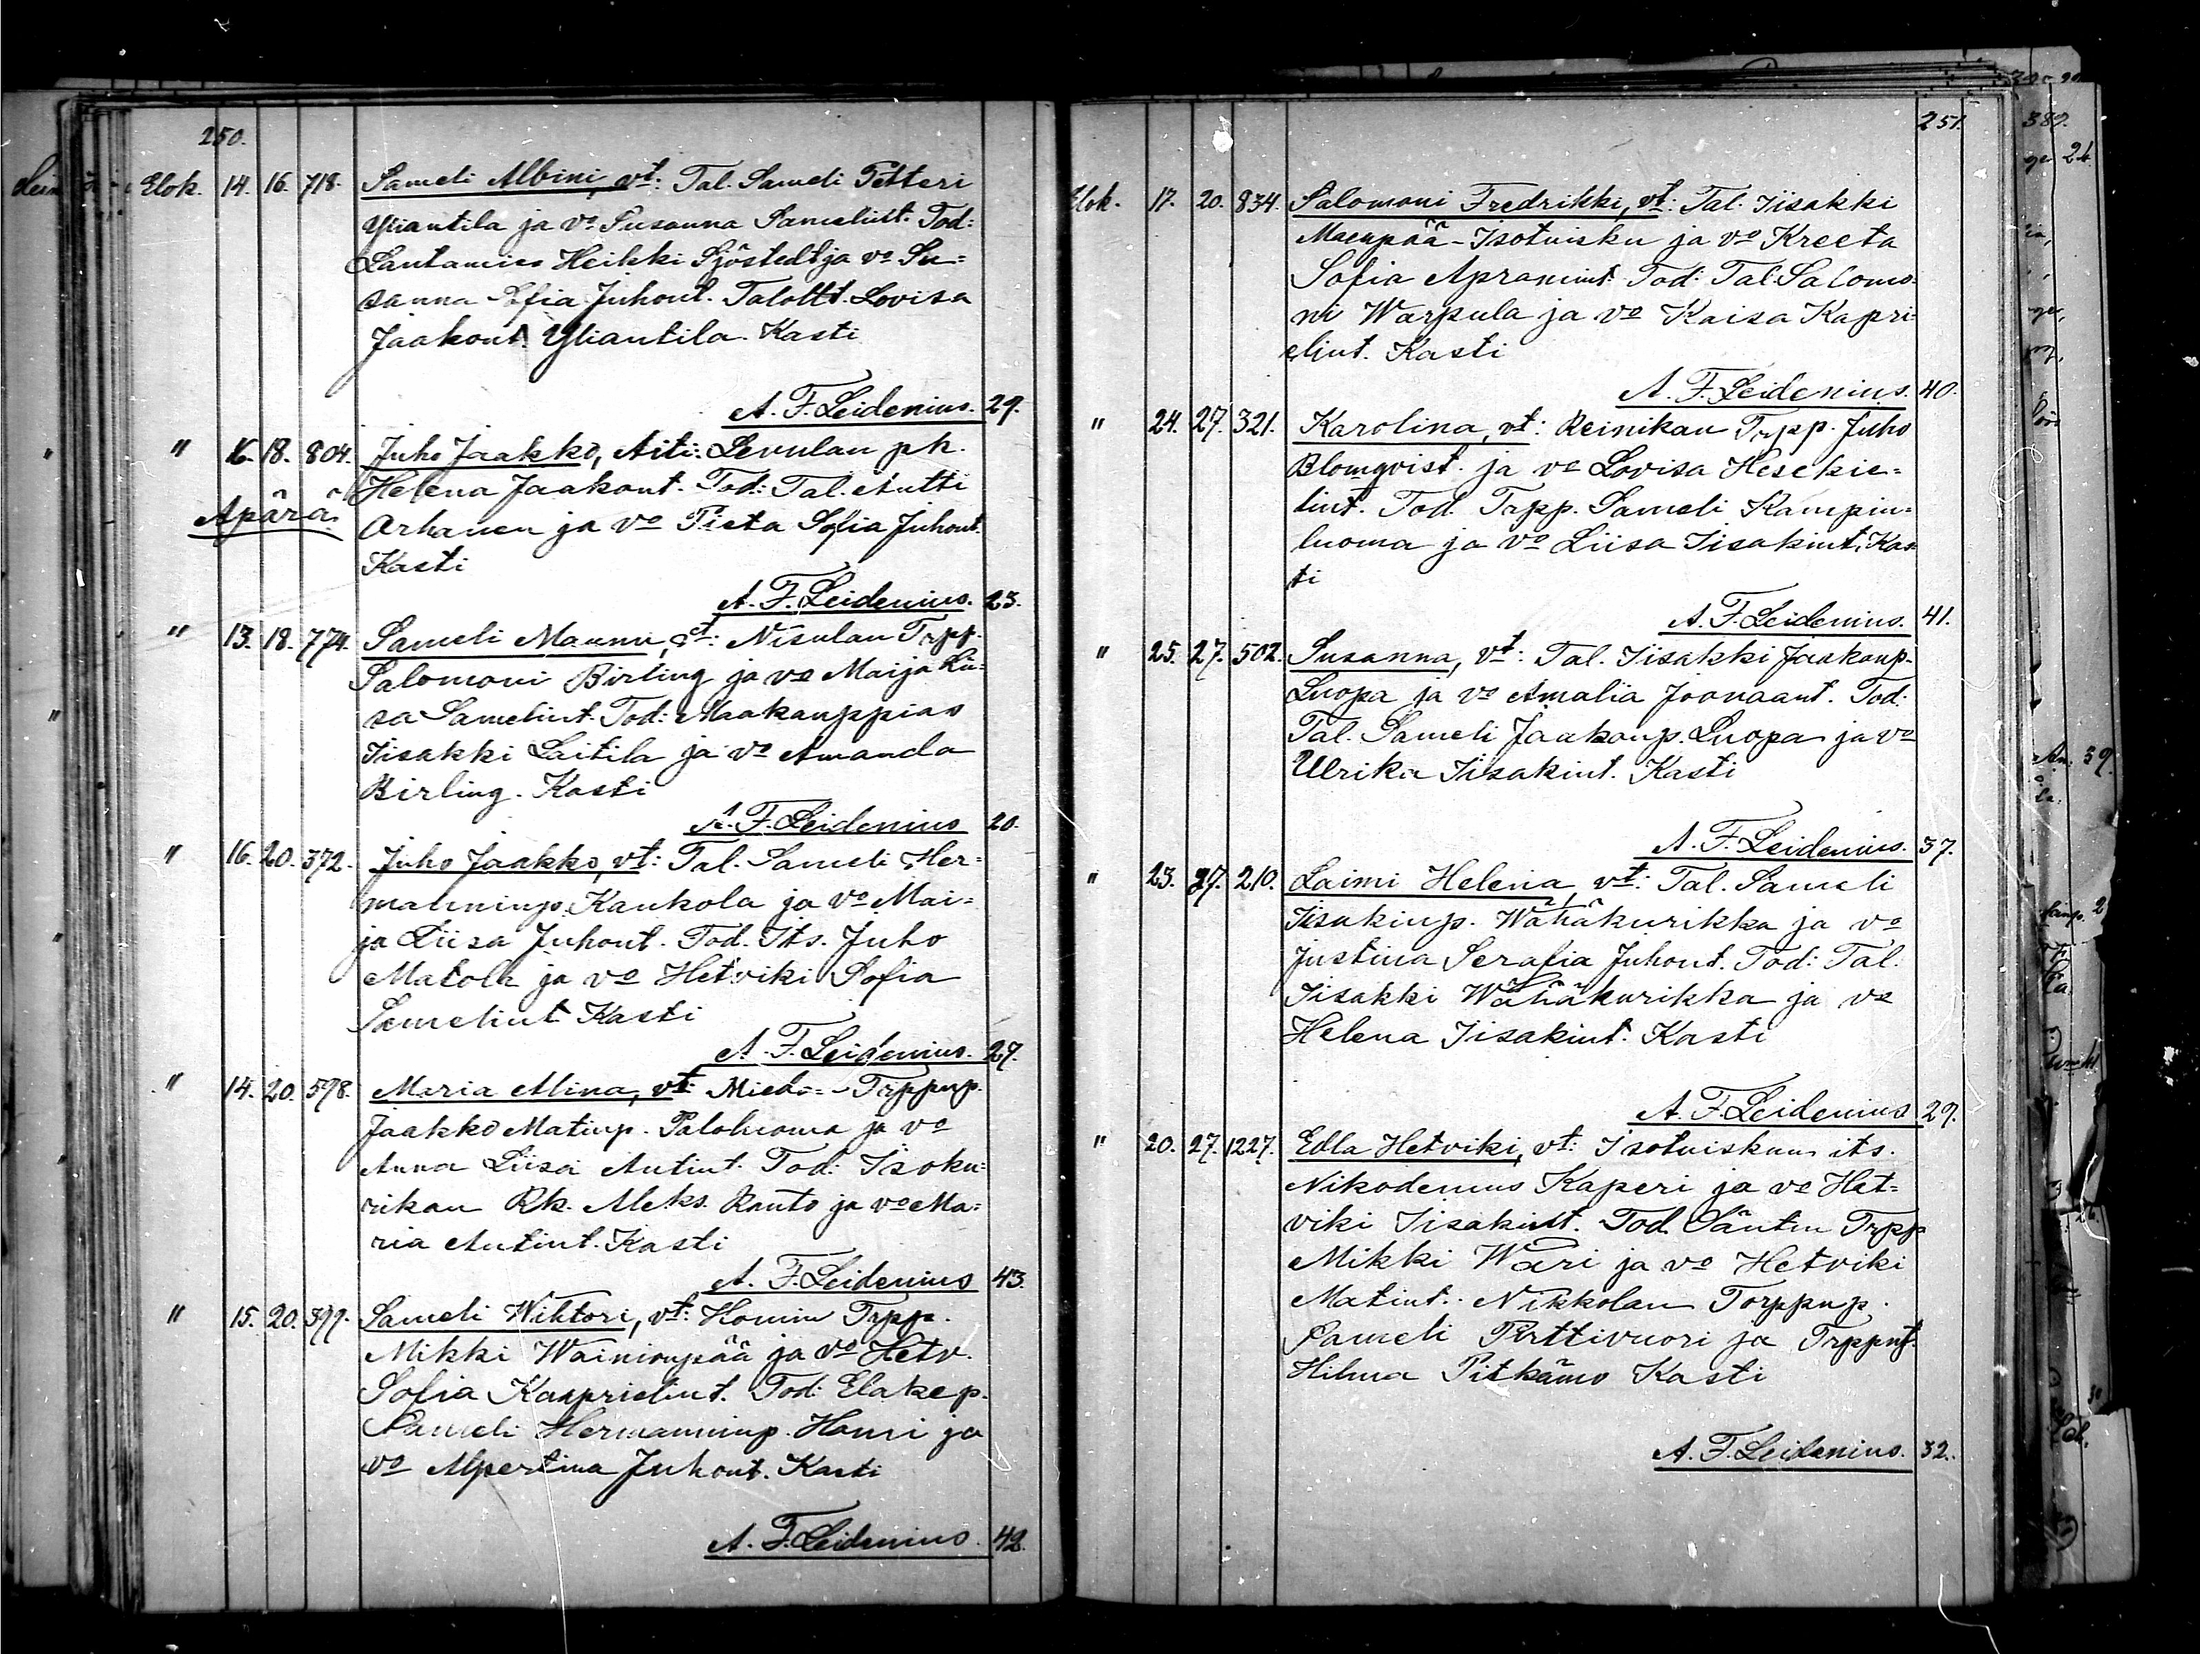 250.
Elok. 14. 16. 718. Sameli Albini, vt: Tal. Sameli Petteri
Yliantila ja vo Susanna Samelint. Tod:
Lautamies Heikki Sjöstedt ja vo Su=
sanna Sofia Juhont. Talollt. Lovisa
Jaakont. Yliantila. Kasti
A. F. Leidenius. 29.
" 16. 18. 804. Juho Jaakko, Äiti: Levulan pk.
Helena Jaakont. Tod: Tal. Antti
Äpärä. Orhanen ja vo Pieta Sofia Juhont.
Kasti
A. F. Leidenius. 23.
" 13. 18. 774. Sameli Maunu, vt: Nisulan Trpp.
Salomoni Birling ja vo Maija Lii=
sa Samelint. Tod: Maakauppias
Iisakki Laitila ja vo Amanda
Birling. Kasti
A. F. Leidenius 20.
" 16. 20. 372. Juho Jaakko, vt: Tal. Sameli Her=
manninp. Kaukola ja vo Mai=
ja Liisa Juhont. Tod. Its. Juho
Matola ja vo Hetviki Sofia
Samelint Kasti
A. F. Leidenius. 27.
" 14. 20. 598. Maria Alina, vt: Trppnp.
Jaakko Matinp. Paloluoma ja vo
Anna Liisa Antint. Tod: Isoku=
rikan Rk. Aleks. Rauto ja vo Ma=
ria Antint. Kasti
A. F. Leidenius 43.
" 15. 20. 399. Sameli Wihtori, vt: Trpp.
Mikki Wainionpää ja vo Hetv.
Sofia Kaaprielint. Tod: Elakep.
Sameli Hermanninp. ja
vo Alpertina Juhont. Kasti
A. F. Leidenius. 42.
251.
Elok. 17. 20. 834. Salomoni Fredrikki, vt: Tal. Iisakki
Maenpää-Isotuisku ja vo Kreeta
Sofia Apramint. Tod: Tal. Salomo=
ni Warpula ja vo Kaisa Kapri=
elint. Kasti
A. F. Leidenius. 40.
" 24. 27. 321. Karolina, vt: Reinikan Trpp. Juho
Blomqvist. ja vo Lovisa Hesekie=
lint. Tod. Trpp. Sameli Kampin=
luoma ja vo Liisa Iisakint. Kas=
ti
A. F. Leidenius. 41.
" 25. 27. 502. Susanna, vt: Tal. Iisakki Jaakonp.
Luopa ja vo Amalia Joonaant. Tod:
Tal. Sameli Jaakonp. Luopa ja vo
Ulrika Iisakint. Kasti
A. F. Leidenius. 37.
" 23. 27. 210. Laimi Helena, vt: Tal. Sameli
Iisakinp. Wähäkurikka ja vo
Justina Serafia Juhont. Tod: Tal.
Iisakki Wähäkurikka ja vo
Helena Iisakint. Kasti
A. F. Leidenius 29.
" 20. 27. 1227. Edla Hetviki, vt: Isotuiskun its.
Nikodemus Kaperi ja vo Het=
viki Iisakint. Tod. Säntin Trpp
Mikki Wäri ja vo Hetviki
Matint. Nikkolan Torppnp.
Sameli Pirttivuori ja Trppnt.
Hilma Pitkämo Kasti
A. F. Leidenius. 32.